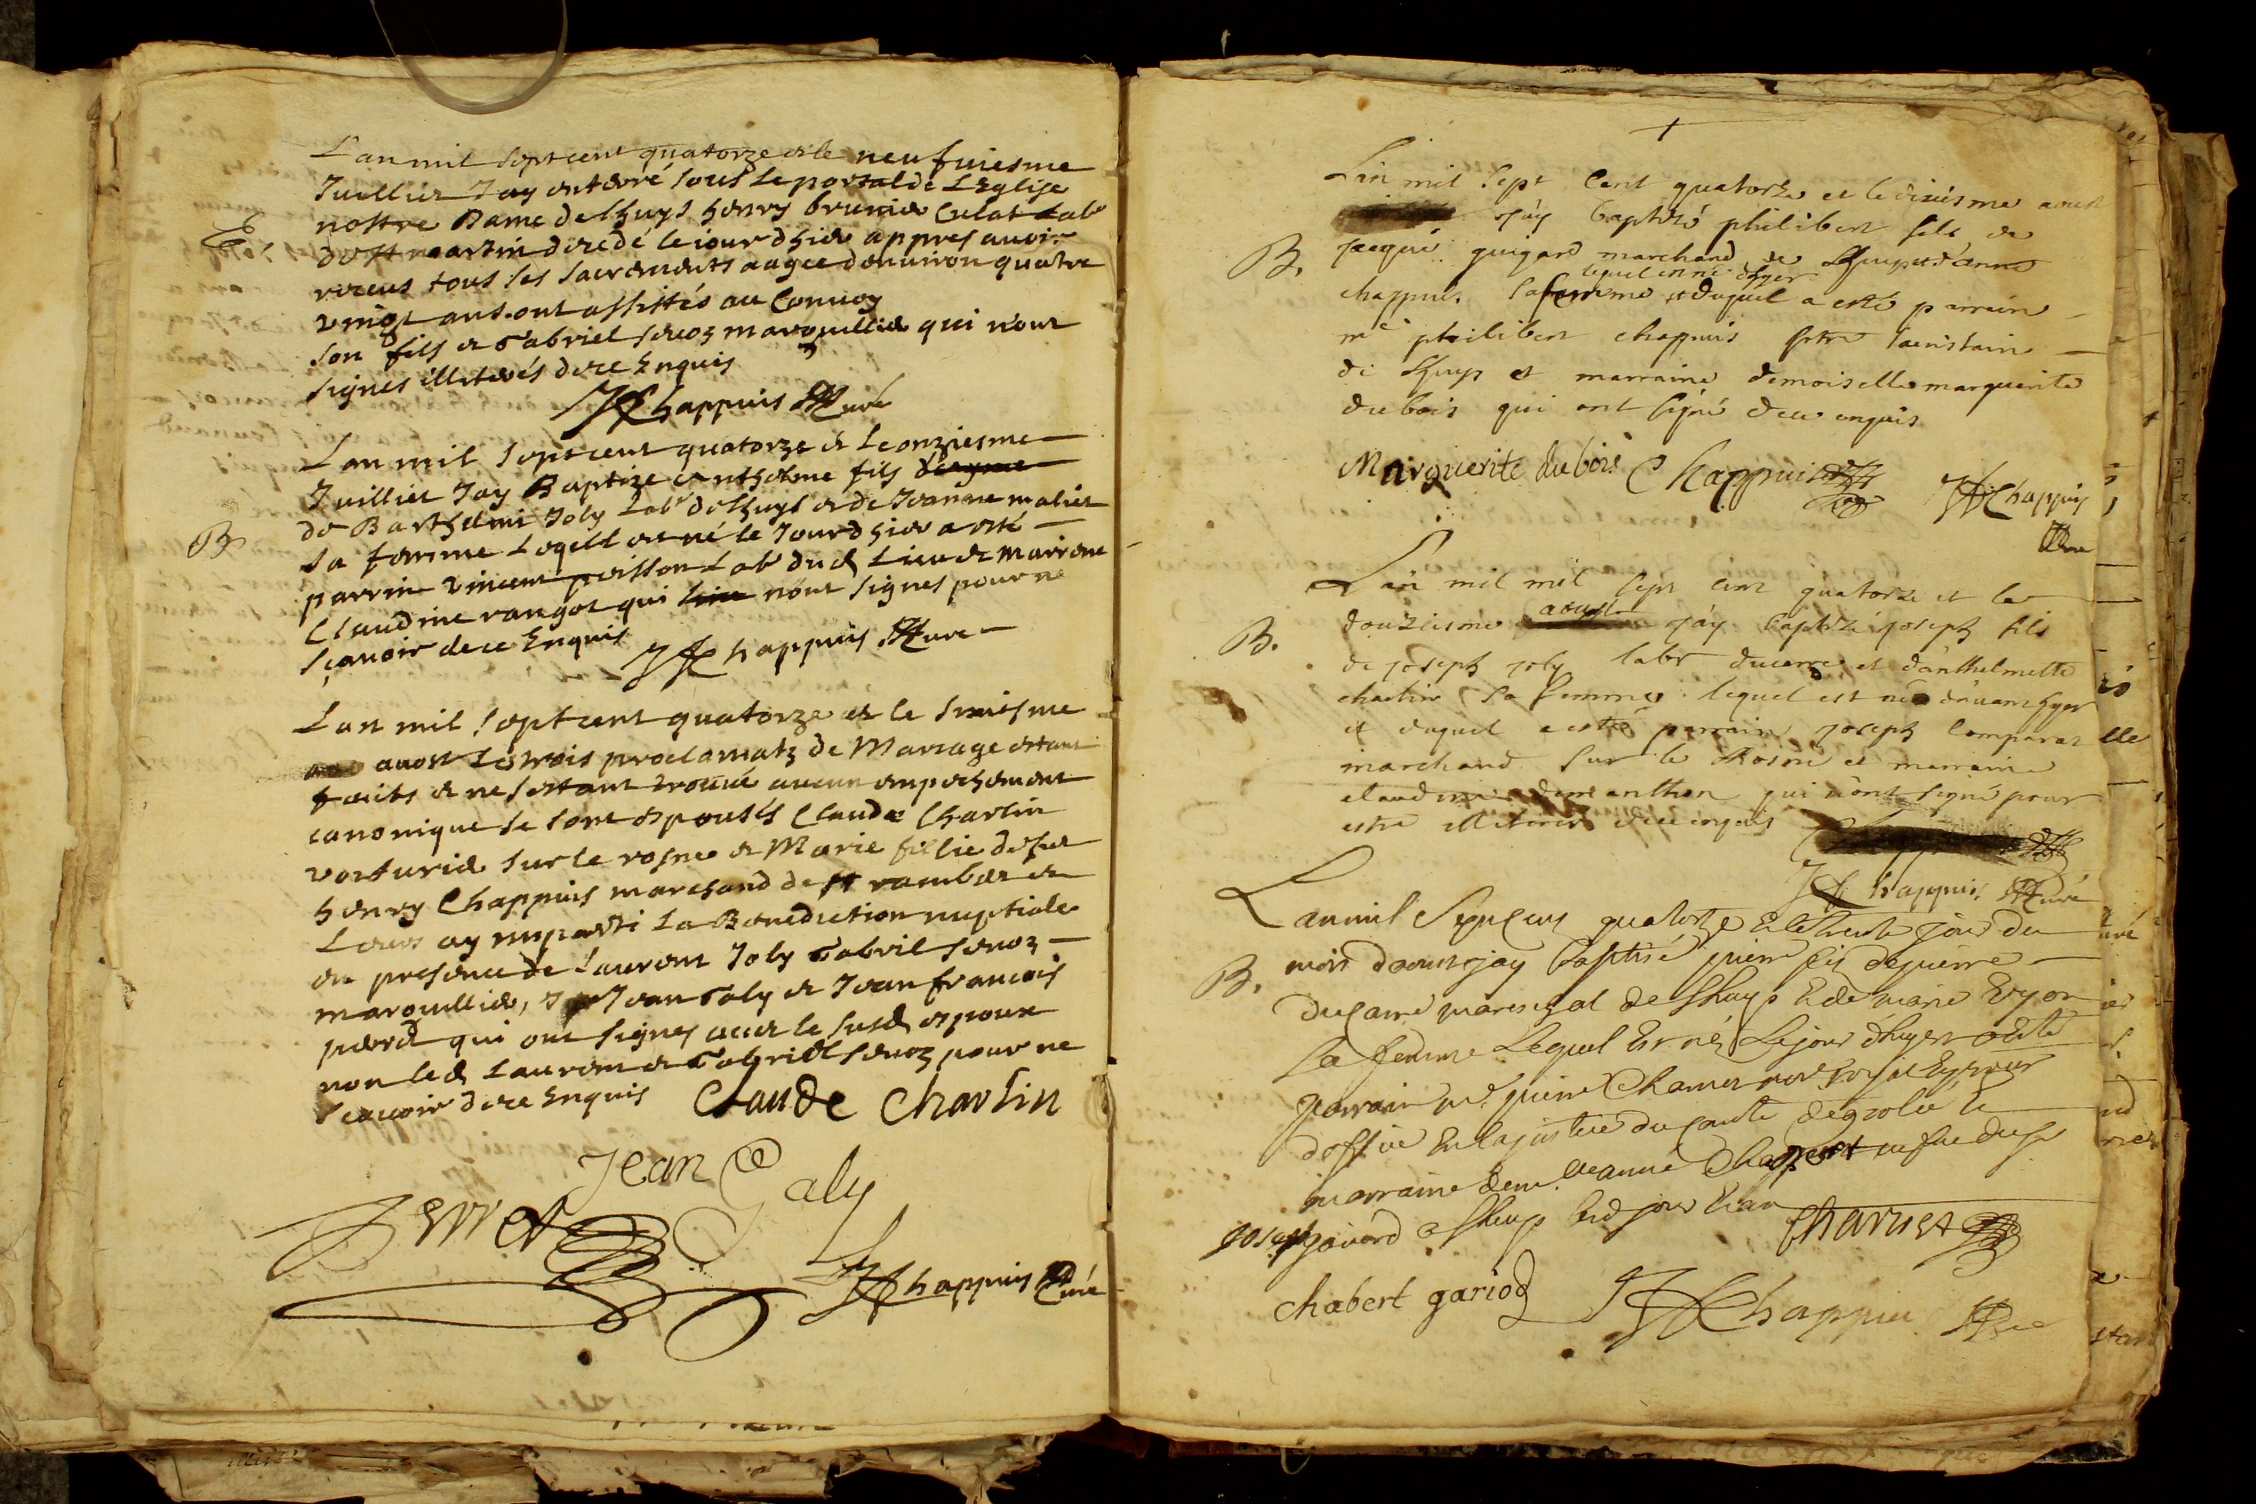 L'an mil sept cent quatorze et le neufuiesme
Juillier Jay enterré sous le portal de L'Eglise
nostre Dame de Lhuys henry brunier Culat Labr
E
de st martin decedé le iour d'hier appres auoir
receus tous ses sacrements aagée d'enuiron quatre
vingt ans. ont assistés au Conuoy
son fils et Gabriel seuoz marguillier qui n'ont
signés illiterés de ce Enquis
Chappuis Curé
L'an mil sept cent quatorze et Le onziesme
Juillier Jay Baptize Anthelme fils
B
de Barthelmi Joly Labr de Lhuys et de Jeanne malier
sa femme Leqell est né le Jour d'hier a esté
parrin vincent poisson Labr dud Lieu et marrene
Claudine rangot qui n'ont signés pour ne
sçauoir de ce Enquis Chappuis Curé
L'an mil sept cent quatorze et le
aoust Les trois proclamatz de Mariage estant
faicts et ne s'estant trouué aucun empeschement
canonique se sont espousés Claude Charlin
voiturier sur le rosne et Marie fillie de feu
henry Chappuis marchand de st rambert et
Leurs ay imparti La Benediction nuptiale
en presence de Laurent Joly Gabril seuoz
marguillier, Jean Galy et Jean francois
perret qui ont signes auec le susd espoux
non led Laurent et Gabriel seuoz pour ne
sçauoir de ce Enquis Claude Charlin
Jean Galy
Perret
Chappuis Curé
L'an mil sept cent quatorze et le disiesme aoust
j'ay baptizé philibert fils de
B.
jacque guigard marchand de Lhuys et d'anne
lequel est né d'hyer
chappuis sa femme et duquel a esté parrain
mr philibert chappuis
de Lhuys et marraine demoiselle marguerite
dubois qui ont signé de ce enquis
Marguerite dubois Chappuis Chappuis
Curé
L'an mil mil sept cent quatorze et le
aoust
douziesme j'ay baptizé joseph fils
B.
de joseph joly labr et d'anthelmette
charlin sa femme lequel est né d'auant hyer
et duquel a esté parrain joseph comparat
marchand sur le Rosne et marraine
claudine dem anthon qui n'ont signé pour
estre illiterés de ce enquis
Chappuis Curé
L'an mil Sept Cens quatorze et le trente jour du
B.
mois d'aoust jay baptisé pierre fils de pierre
ducarre mareschal de Lhuys et de marie Eyon
sa femme Lequel est né Le jour d'hyer a esté
parrain mre pierre Charuet
d'office en la justice du comte de groslée et
marraine dem jeanne Chappot
joseph gauard a Lhuys led jour et an
Charuet
chabert gariod Chappuis Curé